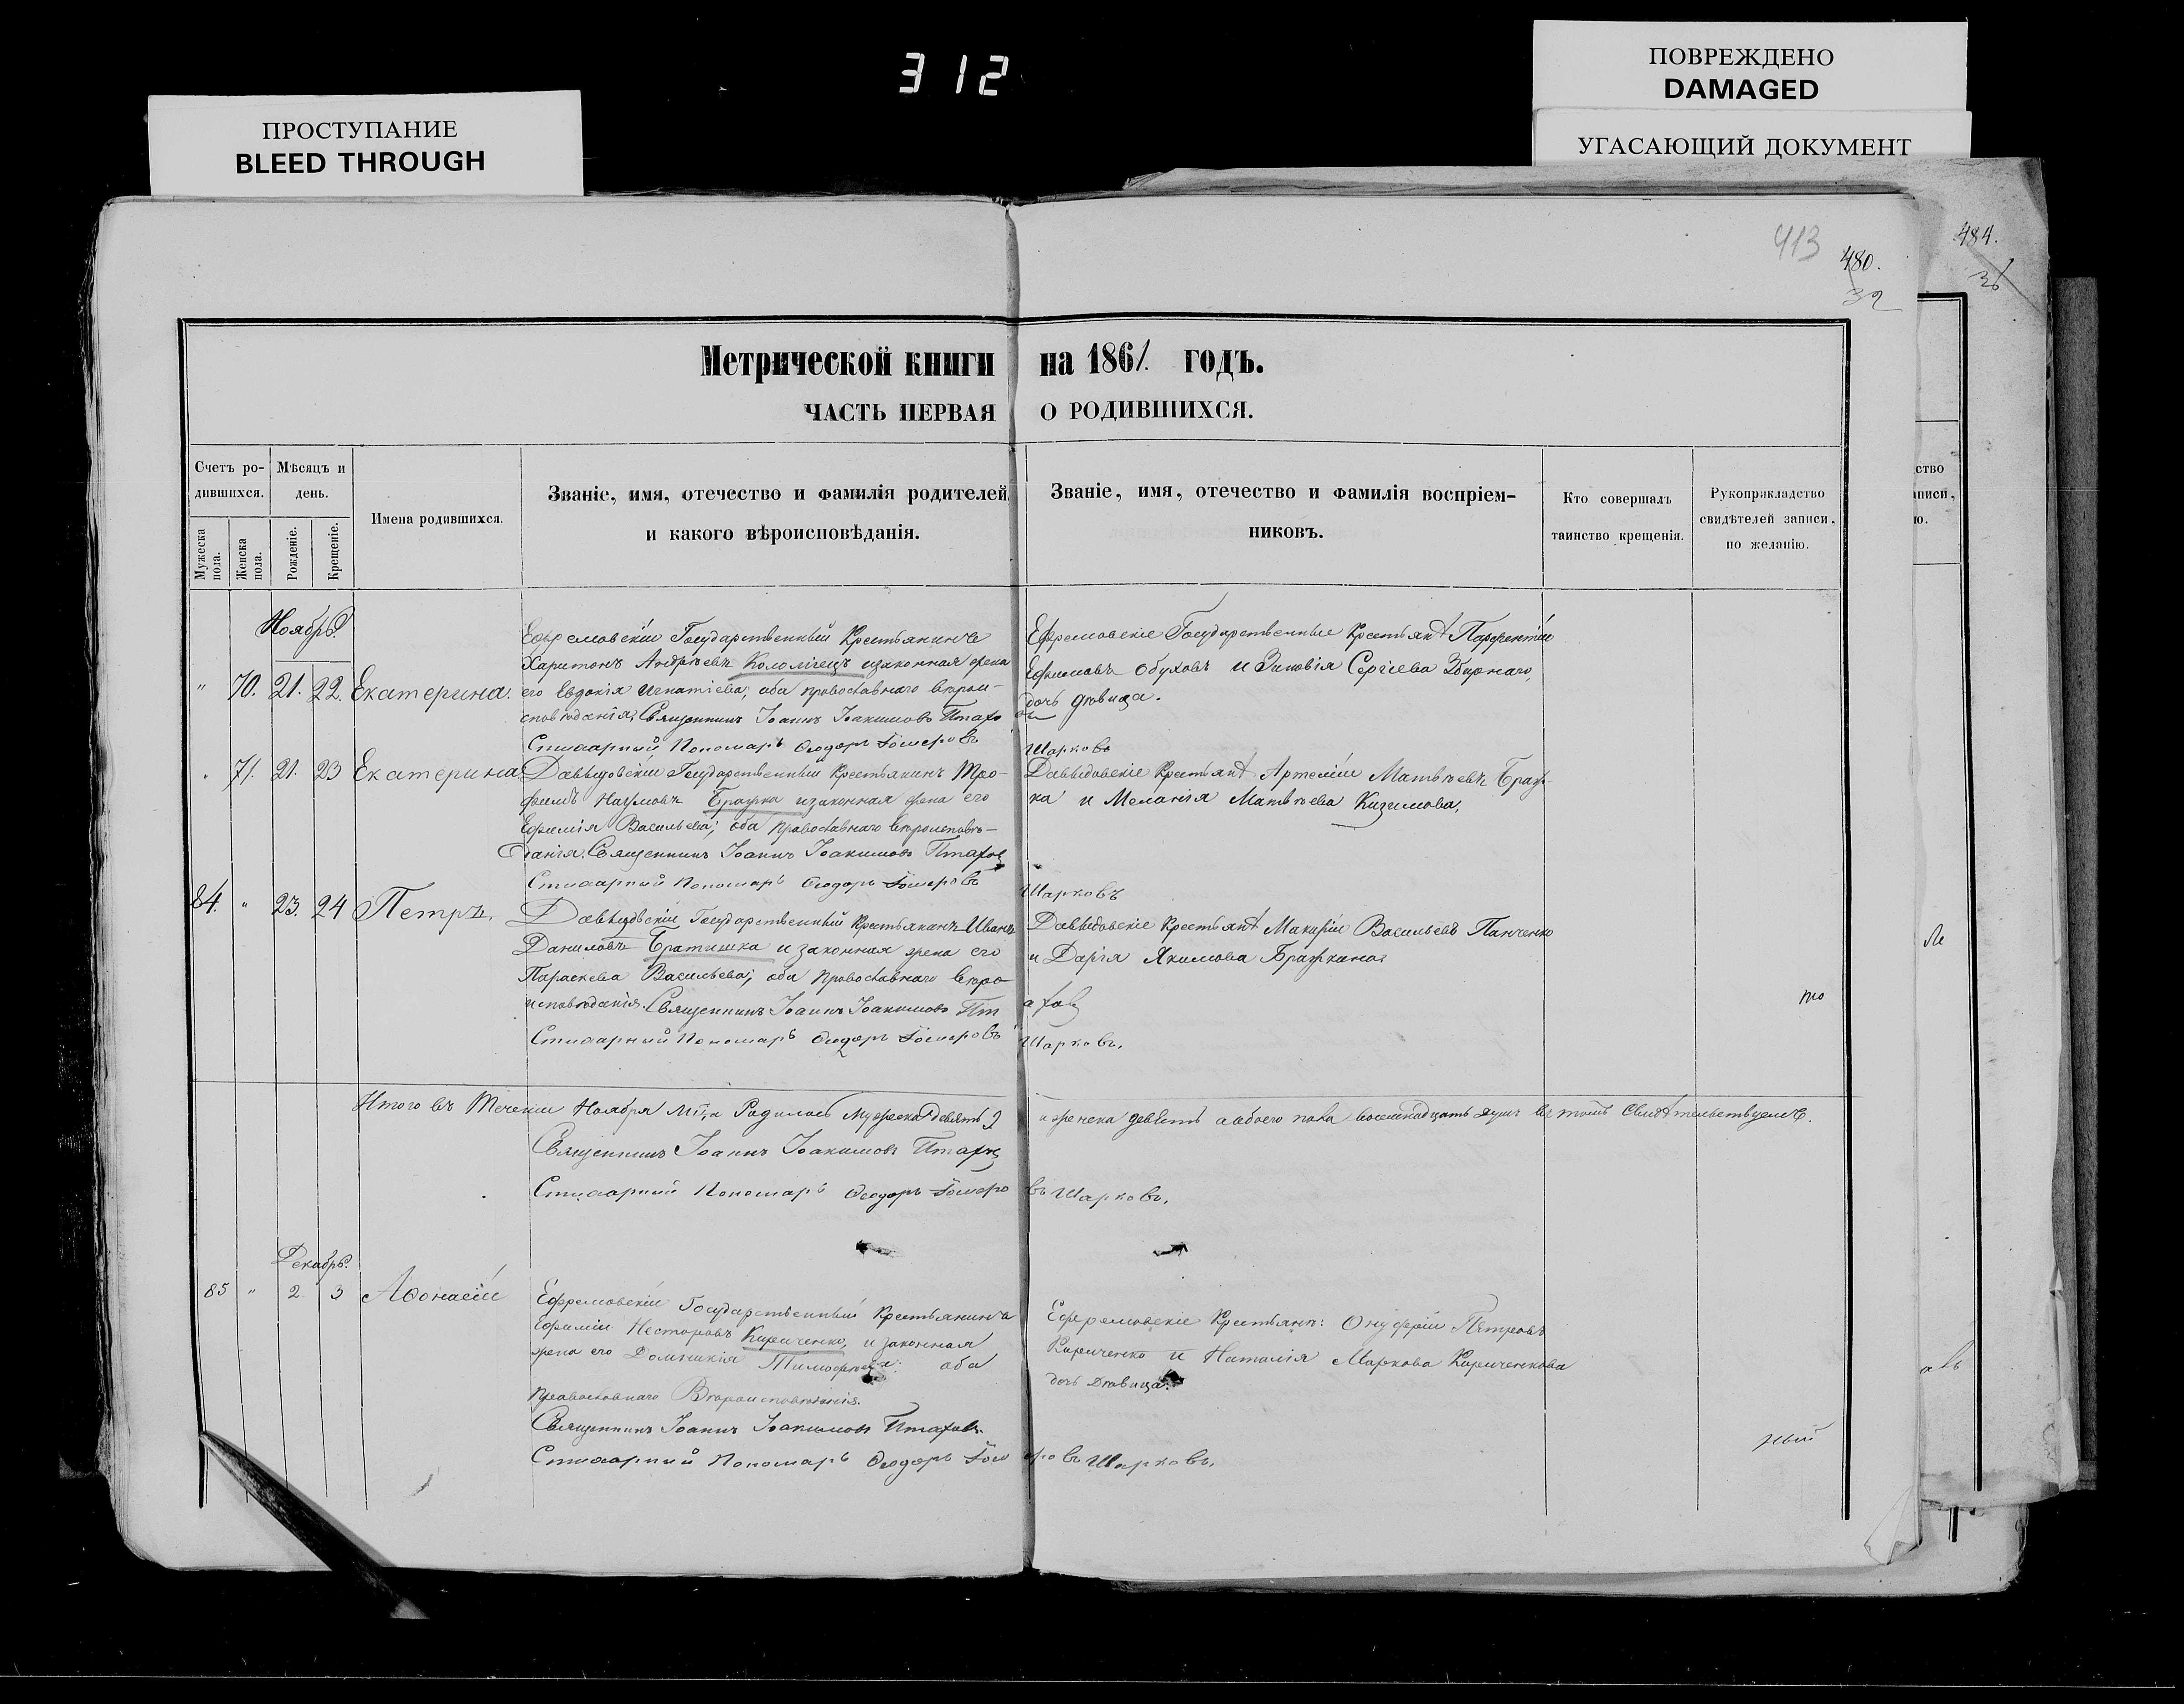 312
ПРОСТУПАНИЕ
BLEED THROUGH
ПОВРЕЖДЕНО
DAMAGED
УГАСАЮЩИЙ ДОКУМЕНТ
413
480.
32
484.
36
Метрической книги на 1861. годъ.
ЧАСТЬ ПЕРВАЯ О РОДИВШИХСЯ.
Счетъ ро-
дившихся.
Мужеска пола.
Женска пола.
Мѣсяцъ и
день.
Рожденіе.
Крещеніе.
Имена родившихся.
Званіе, имя, отечество и фамилія родителей,
и какого вѣроисповѣданія.
Званіе, имя, отечество и фамилія воспріем-
никовъ.
Кто совершалъ
таинство крещенія.
Рукоприкладство
свидѣтелей записи,
по желанію.
Ноябрь
" 70. 21. 22. Екатерина.
Ефремовскій Государственный Крестьянинъ
Харитонъ Андрѣевъ Коломіецъ и законная жена
его Евдокія Игнатіева; оба православнаго вѣрои-
сповѣданія. Священникъ Іоаннъ Іоакимовъ Птахо
Стихарный Пономарь Ѳеодоръ
Ефремовскіе Государственные Крестьянѣ Парфентій
Ефимовъ Обуховъ и Зиновія Сергіева Збирнаго,
дочь дѣвица.
въ
Шарковъ
" 71. 21. 23 Екатерина.
Давыдовскій Государственный Крестьянинъ Тро-
фимъ Наумовъ Бражка и законная жена его
Ефимія Васильева; оба православнаго вѣроисповѣ-
данія. Священникъ Іоаннъ Іоакимовъ Птаховъ
Стихарный Пономарь Ѳеодоръ
Давыдовскіе Крестьянѣ Артемій Матвѣевъ Браж-
ка и Меланія Матвѣева Кизимова,
Шарковъ
84. " 23. 24 Петръ.
Давыдовскій Государственный Крестьянинъ Иванъ
Даниловъ Братишка и законная жена его
Параскева Васильева; оба православнаго вѣро-
исповѣданія. Священникъ Іоаннъ Іоакимовъ Пт
Стихарный Пономарь Ѳеодоръ
Давыдовскіе Крестьянѣ Макарій Васильевъ Панченко
и Дарія Якимова Бражкина
аховъ
Шарковъ.
Итого въ Теченіи Ноября Мц̃а Родилось Мужеска девять 9 и женска девять а обоего пола восемнадцать душъ въ томъ Свидѣтельствуемъ.
Священникъ Іоаннъ Іоакимовъ Птаховъ
Стихарный Пономарь Ѳеодоръ
въ Шарковъ.
Декабрь.
85 " 2 3 Аѳонасій
Ефремовскій Государственный Крестьянинъ
Ефимій Несторовъ Кириченко, и законная
жена его Домникія Тимофѣева: оба
Православнаго Вѣроисповѣданія.
Священникъ Іоаннъ Іоакимовъ Птаховъ.
Стихарный Пономарь Ѳеодоръ
Ефремовскіе Крестьянѣ: Онуфрій Петровъ
Кириченко и Наталія Маркова Кириченкова
дочь Дѣвица.
Шарковъ.